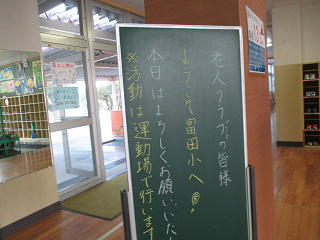 老人クラブの皆様
ようこそ富田小へ
本日はよろしくお願いいた
※活動は運動場で行います